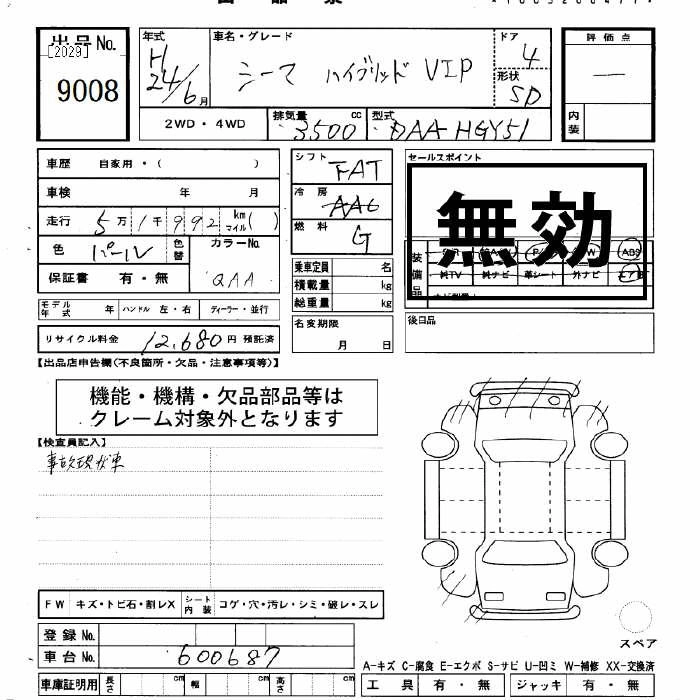 出品票
出品No.
[2029]
9008
年式
H24/6月
車名・グレード
シーマ ハイブリッド VIP
ドア
4
形状
SD
評価点
—
内装
2WD・4WD
排気量
3500cc
型式
DAA HGY51
車歴 自家用・( )
車検 年 月
走行 5万1千992 km マイル( )
色 パール 色替
カラーNo.
QAA
保証書 有・無
モデル年式 年 ハンドル 左・右 ディーラー・並行
リサイクル料金 12,680円 預託済
シフト
FAT
冷房
AAC
燃料
G
乗車定員 名
積載量 kg
総重量 kg
名変期限
月 日
セールスポイント
無効
装備品
純TV 純ナビ 革シート 外ナビ
ABS
後日品
【出品店申告欄(不良箇所・欠品・注意事項等)】
機能・機構・欠品部品等は
クレーム対象外となります
【検査員記入】
事故現状車
FW キズ・トビ石・割レX シート内装 コゲ・穴・汚レ・シミ・破レ・スレ
登録No.
車台No. 600687
車庫証明用 長さ cm 幅 cm 高さ cm
スペア
A-キズ C-腐食 E-エクボ S-サビ U-凹ミ W-補修 XX-交換済
工具 有・無 ジャッキ 有・無